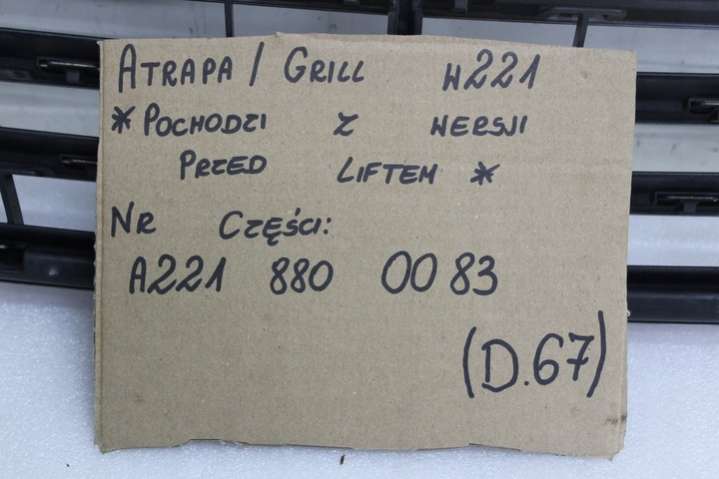 ATRAPA / GRILL W221
*POCHODZI Z WERSJI
PRZED LIFTEM *
NR CZĘŚCI:
A221 880 00 83
(D.67)